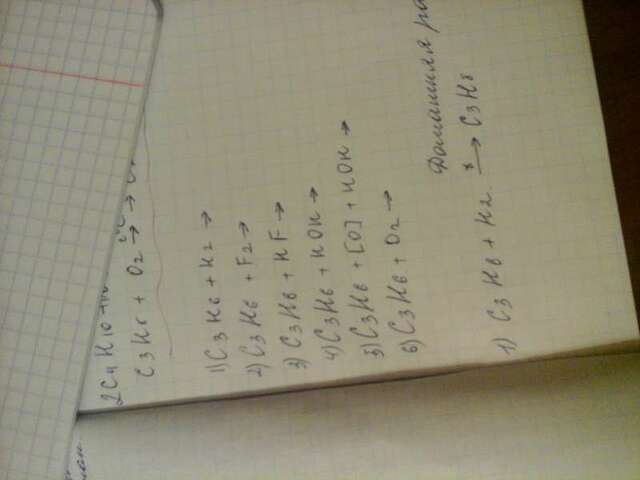 2C4H10 +
C3H6 + O2 → → C
1) C3H6 + H2 →
2) C3H6 + F2 →
3) C3H6 + HF →
4) C3H6 + HOH →
5) C3H6 + [O] + HOH →
6) C3H6 + O2 →
Домашняя
1) C3H6 + H2 → C3H8